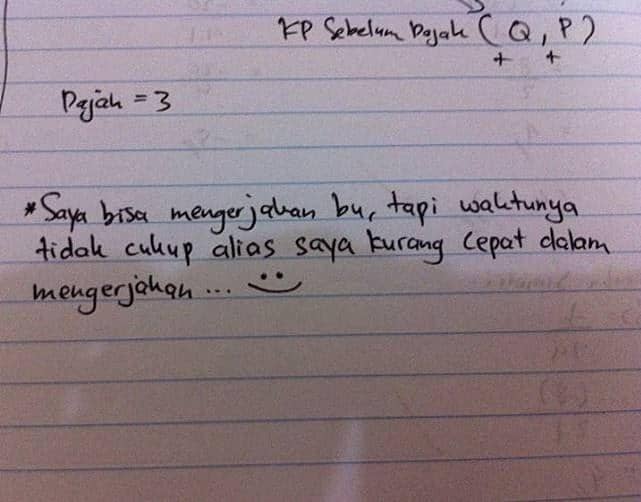 KP Sebelum Pajak ( Q, P )
+ +
Pajak = 3
*Saya bisa mengerjakan bu, tapi waktunya
tidak cukup alias saya kurang cepat dalam
mengerjakan ... :)